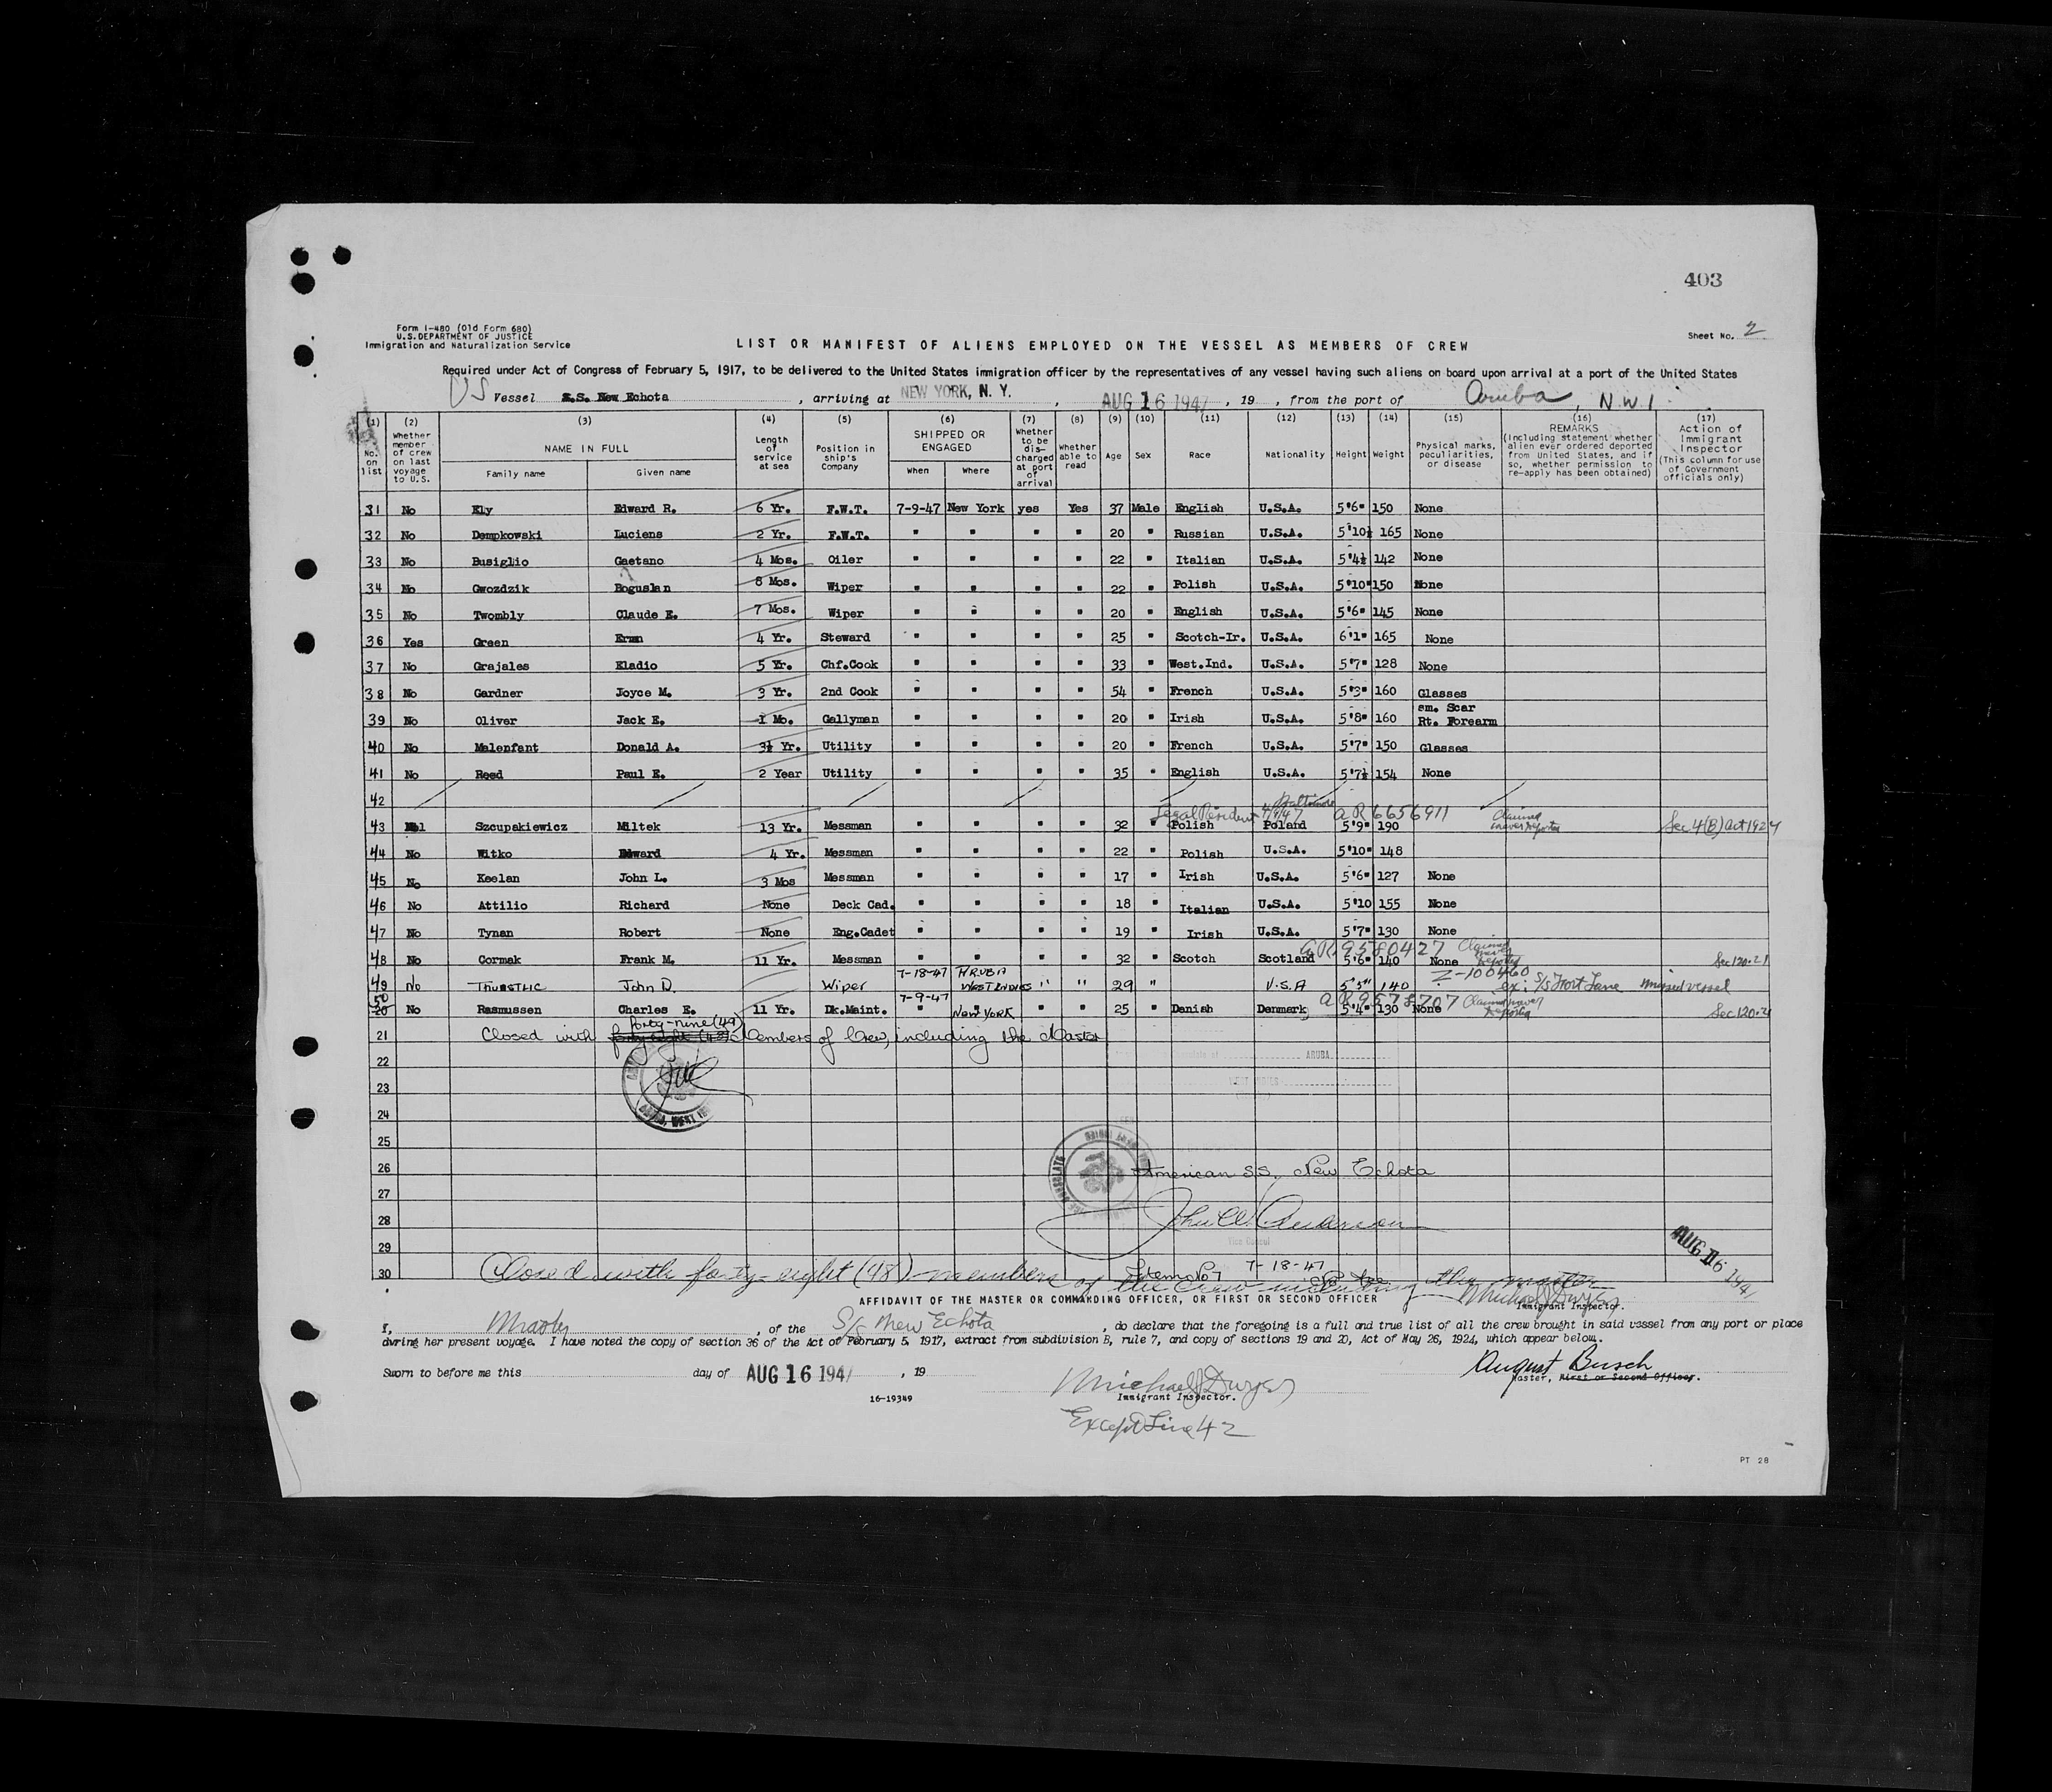 403
Form I-480 (Old Form 680)
U.S. DEPARTMENT OF JUSTICE
Immigration and Naturalization Service
Sheet No. 2
LIST OR MANIFEST OF ALIENS EMPLOYED ON THE VESSEL AS MEMBERS OF CREW
Required under Act of Congress of February 5, 1917, to be delivered to the United States immigration officer by the representatives of any vessel having such aliens on board upon arrival at a port of the United States
US Vessel S.S. New Echota, arriving at NEW YORK, N. Y., AUG 16 1947, 19 , from the port of Aruba, N.W.I.
(1) No. on list (2) Whether member of crew on last voyage to U.S. (3) NAME IN FULL Family name Given name (4) Length of service at sea (5) Position in ship's Company (6) SHIPPED OR ENGAGED When Where (7) Whether to be discharged at port of arrival (8) Whether able to read (9) Age (10) Sex (11) Race (12) Nationality (13) Height (14) Weight (15) Physical marks, peculiarities, or disease (16) REMARKS (Including statement whether alien ever ordered deported from United States, and if so, whether permission to re-apply has been obtained) (17) Action of Immigrant Inspector (This column for use of Government officials only)
31 No Ely Edward R. 6 Yr. F.W.T. 7-9-47 New York yes Yes 37 Male English U.S.A. 5'6" 150 None
32 No Dempkowski Luciens 2 Yr. F.W.T. " " " " 20 " Russian U.S.A. 5'10½ 165 None
33 No Busiglio Gaetano 4 Mos. Oiler " " " " 22 " Italian U.S.A. 5'4½ 142 None
34 No Gwozdzik Boguslan 8 Mos. Wiper " " " " 22 " Polish U.S.A. 5'10" 150 None
35 No Twombly Claude E. 7 Mos. Wiper " " " " 20 " English U.S.A. 5'6" 145 None
36 Yes Green 4 Yr. Steward " " " " 25 " Scotch-Ir. U.S.A. 6'1" 165 None
37 No Grajales Eladio 5 Yr. Chf.Cook " " " " 33 " West.Ind. U.S.A. 5'7" 128 None
38 No Gardner Joyce M. 3 Yr. 2nd Cook " " " " 54 " French U.S.A. 5'3" 160 Glasses
39 No Oliver Jack E. 1 Mo. Gallyman " " " " 20 " Irish U.S.A. 5'8" 160 sm. Scar Rt. Forearm
40 No Malenfant Donald A. 3½ Yr. Utility " " " " 20 " French U.S.A. 5'7" 150 Glasses
41 No Reed Paul E. 2 Year Utility " " " " 35 " English U.S.A. 5'7½ 154 None
42
Legal Resident Baltimore AR 6656911 Claims never reported
43 Szcupakiewicz Miltek 13 Yr. Messman " " " " 32 " Polish Poland 5'9" 190 Sec 4(B) Act 1924
44 No Witko Edward 4 Yr. Messman " " " " 22 " Polish U.S.A. 5'10" 148
45 No Keelan John L. 3 Mos Messman " " " " 17 " Irish U.S.A. 5'6" 127 None
46 No Attilio Richard None Deck Cad. " " " " 18 " Italian U.S.A. 5'10 155 None
47 No Tynan Robert None Eng.Cadet " " " " 19 " Irish U.S.A. 5'7" 130 None
AR 9580427 Claims never reported
48 No Cormak Frank M. 11 Yr. Messman " " " " 32 " Scotch Scotland 5'6" 140 None Sec 120.21
49 No John D. Wiper 7-18-47 ARUBA WEST INDIES " " 29 " U.S.A 5'5" 140 Z-100460 ex: S/S Fort Lane missed vessel
AR 9578707 Claims never reported
50 20 No Rasmussen Charles E. 11 Yr. Dk.Maint. 7-9-47 " " New York " " 25 " Danish Denmark 5'4" 130 None Sec 120.21
forty-nine (49)
21 Closed with forty eight (48) Members of Crew, including the Master
22 ARUBA
23 WEST INDIES
24
25
26 American SS. New Echota
27
28 John W. Anderson
Vice Consul
29
AUG 16 1947
30 Item No 7 7-18-47 No fee
Closed with forty-eight (48) members of the crew including the master
Michael J Dwyer
Immigrant Inspector.
AFFIDAVIT OF THE MASTER OR COMMANDING OFFICER, OR FIRST OR SECOND OFFICER
I, Master, of the S/S New Echota, do declare that the foregoing is a full and true list of all the crew brought in said vessel from any port or place
during her present voyage. I have noted the copy of section 36 of the Act of February 5, 1917, extract from subdivision B, rule 7, and copy of sections 19 and 20, Act of May 26, 1924, which appear below.
August Busch
Master, First or Second Officer.
Sworn to before me this day of AUG 16 1947, 19
Michael J Dwyer
Immigrant Inspector.
16-19349
Except Line 42
PT 28